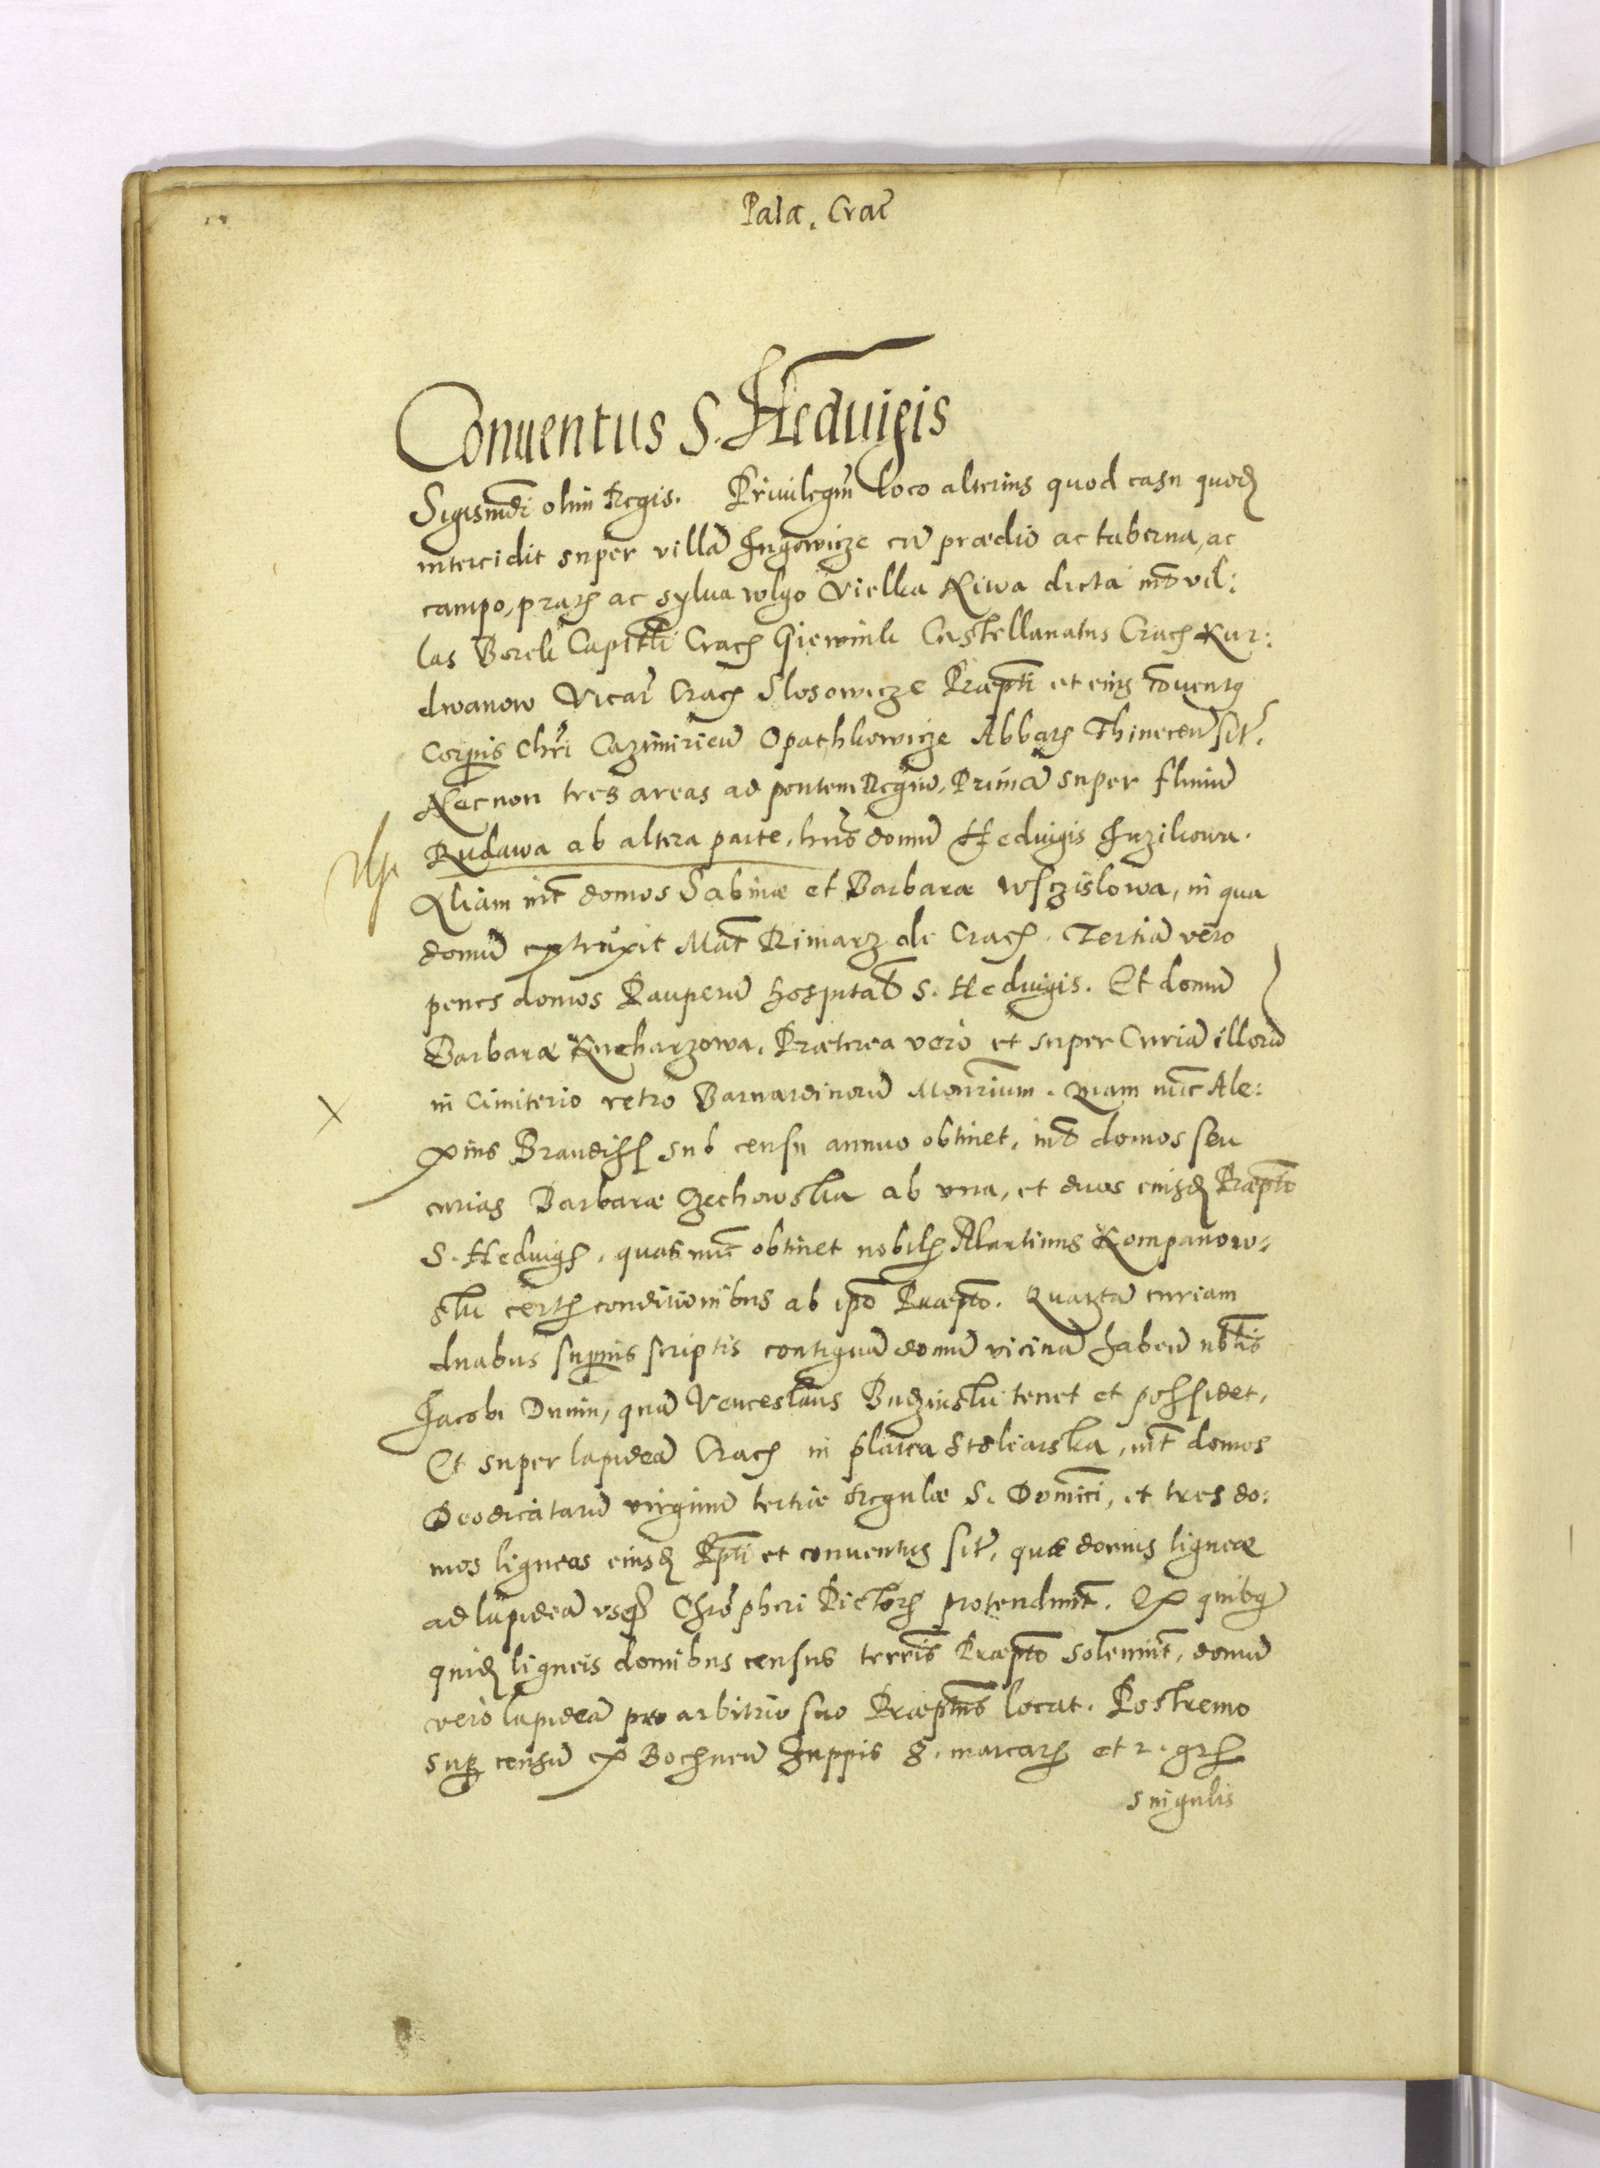 Pala. Crac̃
Conuentus S. Heduigis
Sigismũdi olim Regis. Priuilegiũ loco alterius quod casu quodã
intercidit super villã Jugowicze cũ prædio ac taberna, ac
campo, pratis ac sylua wlgo Vielka Niwa dicta int̃ vil:
las Borek Capitli Crac̃ Giewink Castellanatus Crac̃ Kur:
dwanow Vicar̃ Crac̃ Slosowicze Præpti et eius cõuentus
Corpis Chri Cazimirien̄ Opathkowicze Abbatis Thinecen̄ sit̃.
Necnon tres areas ad pontem Regiũ, Primã super fluuiũ
Rudawa ab altera parte, hns̃ domũ Heduigis Juzikowa.
Aliam int̃ domos Sabinæ et Barbaræ Wsczislowa, in qua
domũ extruxit Mat̃ Rimarz de Crac̃. Tertiã vero
penes domos Pauperũ hospital̃ S. Heduigis. Et domũ
Barbaræ Kucharzowa. Præterea verò et super Curiã illorũ
in Cimiterio retro Barnardinorũ Monr̃ium. Quam nũc Ale:
xius Brandis sub censu annuo obtinet, int̃ domos seu
curias Barbaræ Czechowska ab vna, et duos eiusdẽ Præpti
S. Heduigis, quas nũc obtinet nobilis Martinus Kompanow:
ski certis conditionibus ab ipõ Præpto. Quartã curiam
duabus supius scriptis contiguã domũ vicinã haben̄ nb̃lis
Jacobi Dunin, quã Venceslaus Budzinski tenet et possidet,
Et super lapideã Crac̃ in platea Stoliarska, int̃ domos
Deodicatarũ virginũ tertiæ Regulæ S. Dom̃ici, et tres do:
mos ligneas eiusdẽ Ppti et conuentus sit̃, quæ domus ligneæ
ad lapideã vsq3 Chrõpheri Pictoris protendunt̃. Ex quibus
quidẽ ligneis domibus census terr̃is Præpto soluunt̃, domũ
verò lapideã pro arbitrio suo Præptus locat. Postremo
sup censũ ex Bochnen̄ Zuppis 8. marcaris et 2. gris
singulis